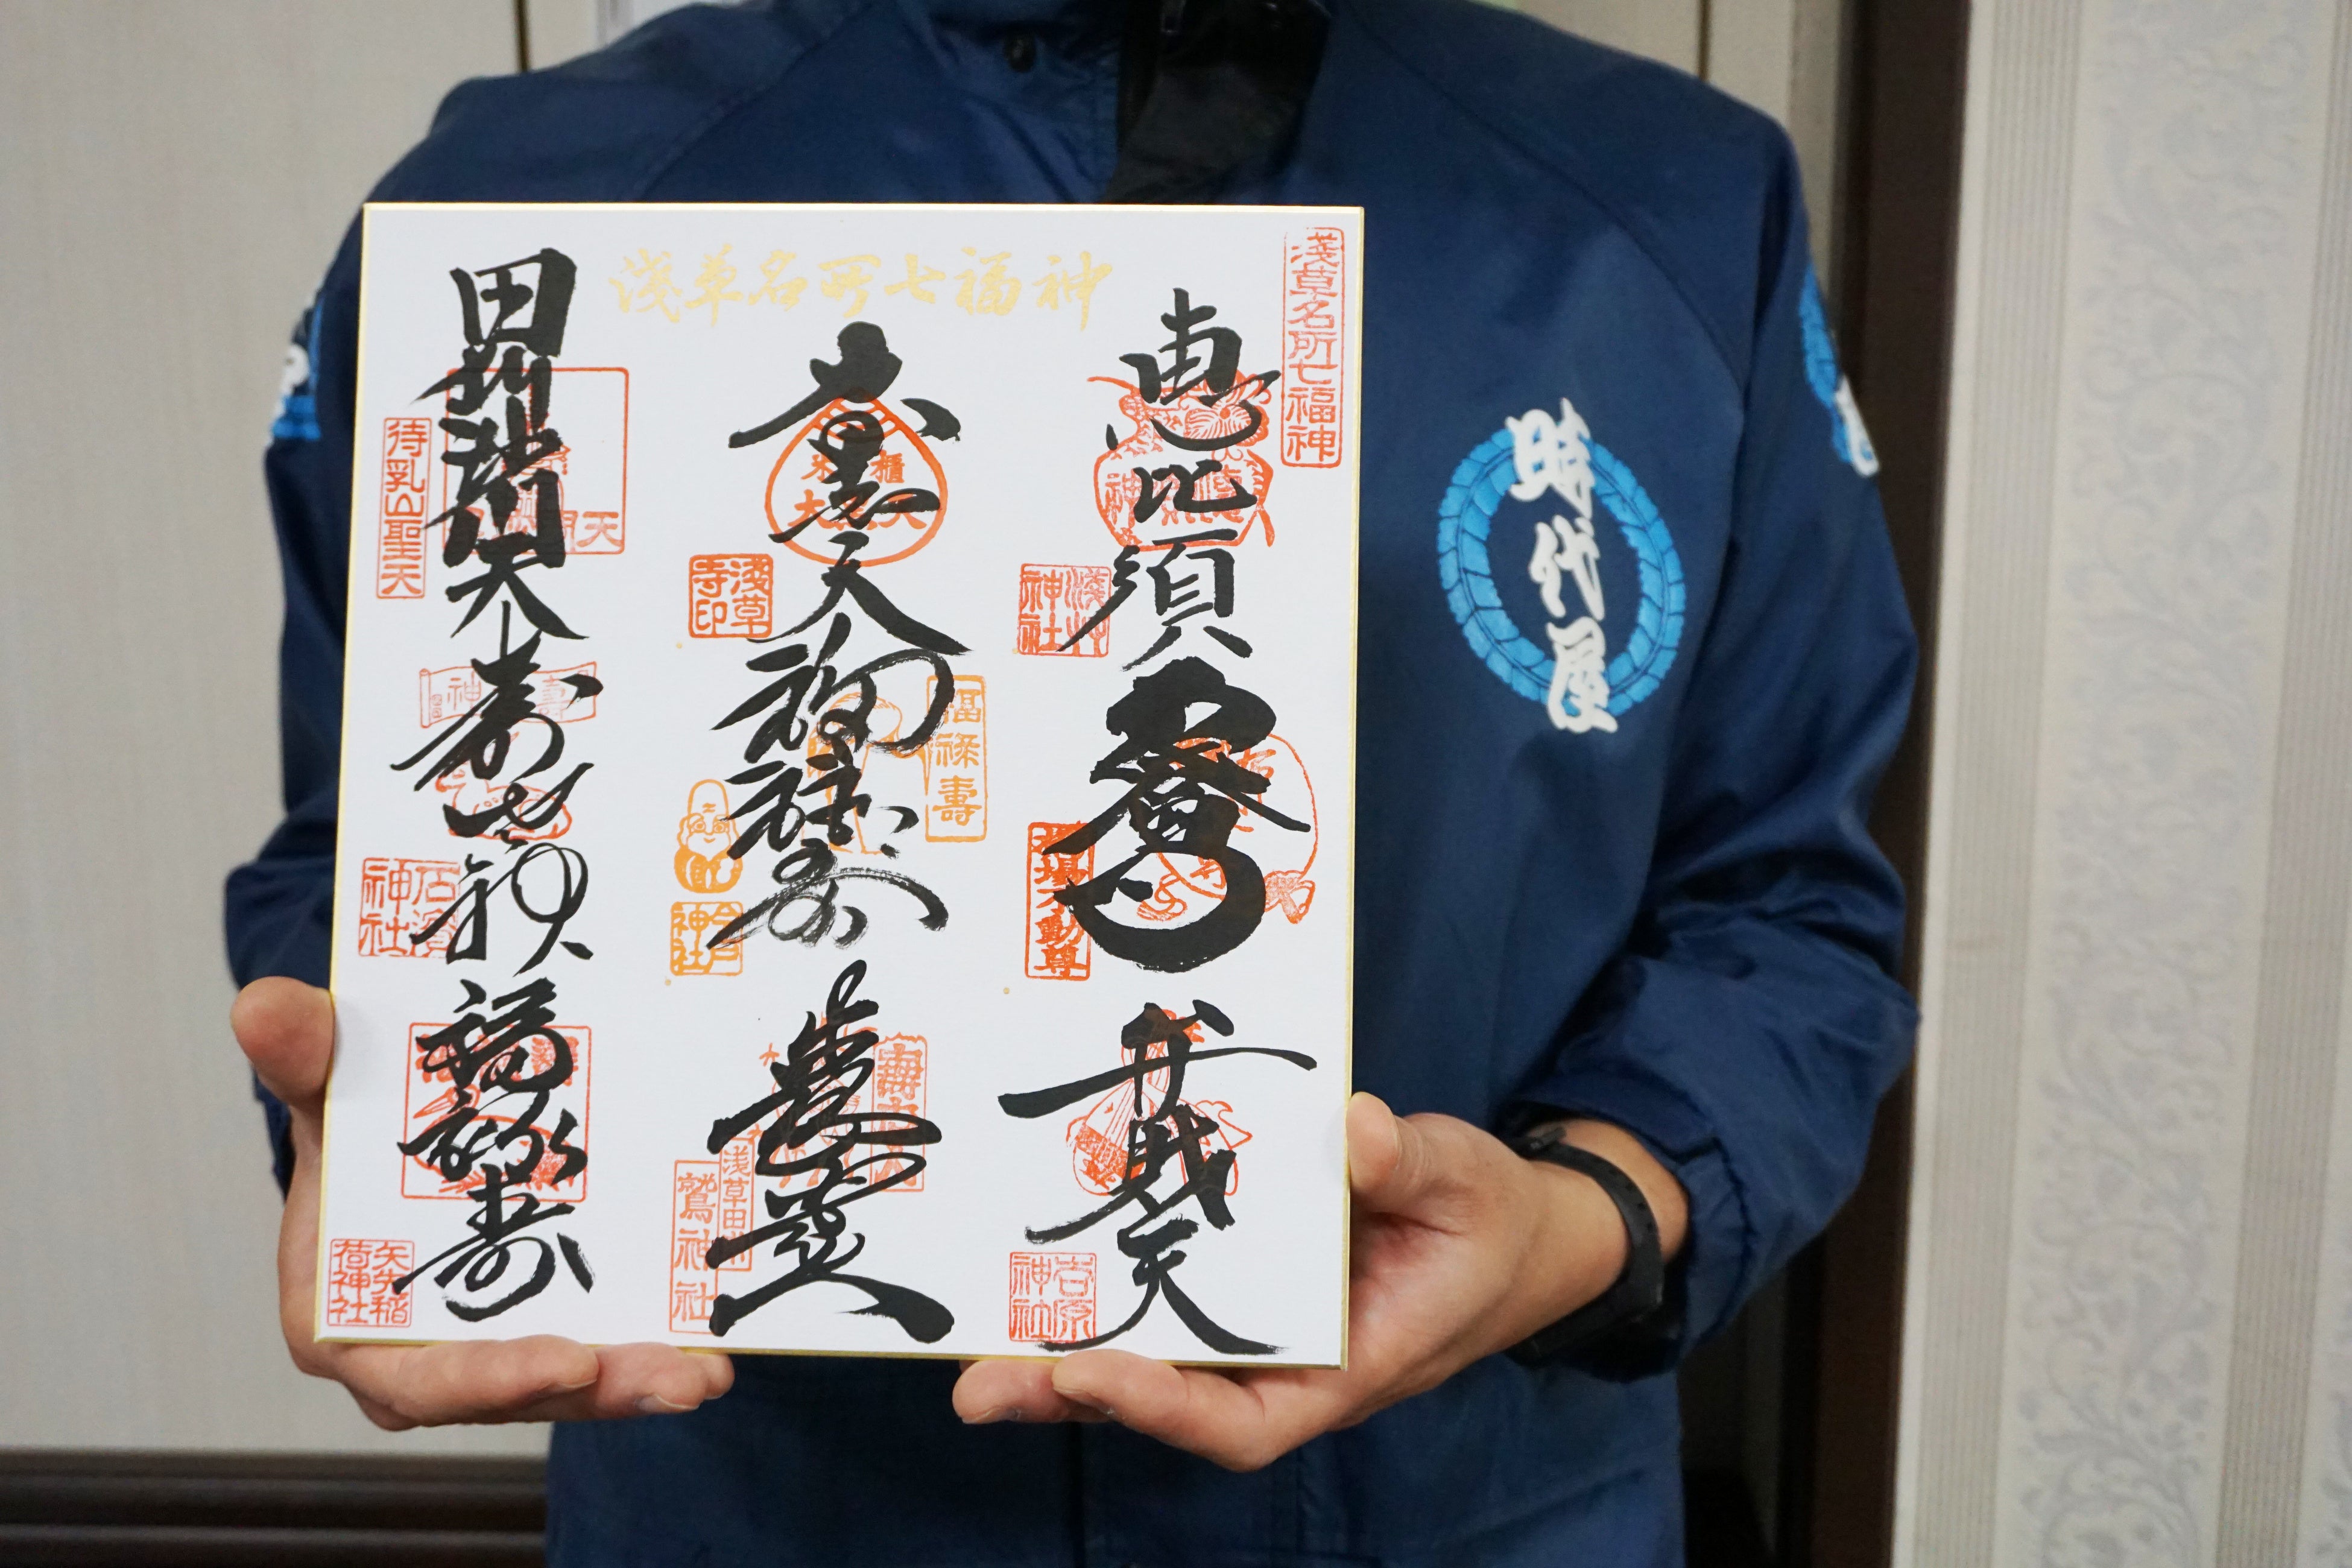 浅草名所七福神
浅草名所七福神
恵比須
浅草神社
布袋尊
橋場不動尊
弁財天
吉原神社
大黒天
浅草寺印
福禄寿
福禄壽
今戸神社
寿老人
浅草田甫
鷲神社
毘沙門天
天
待乳山聖天
寿老神
石濱神社
福禄寿
矢先稲荷神社
時代屋